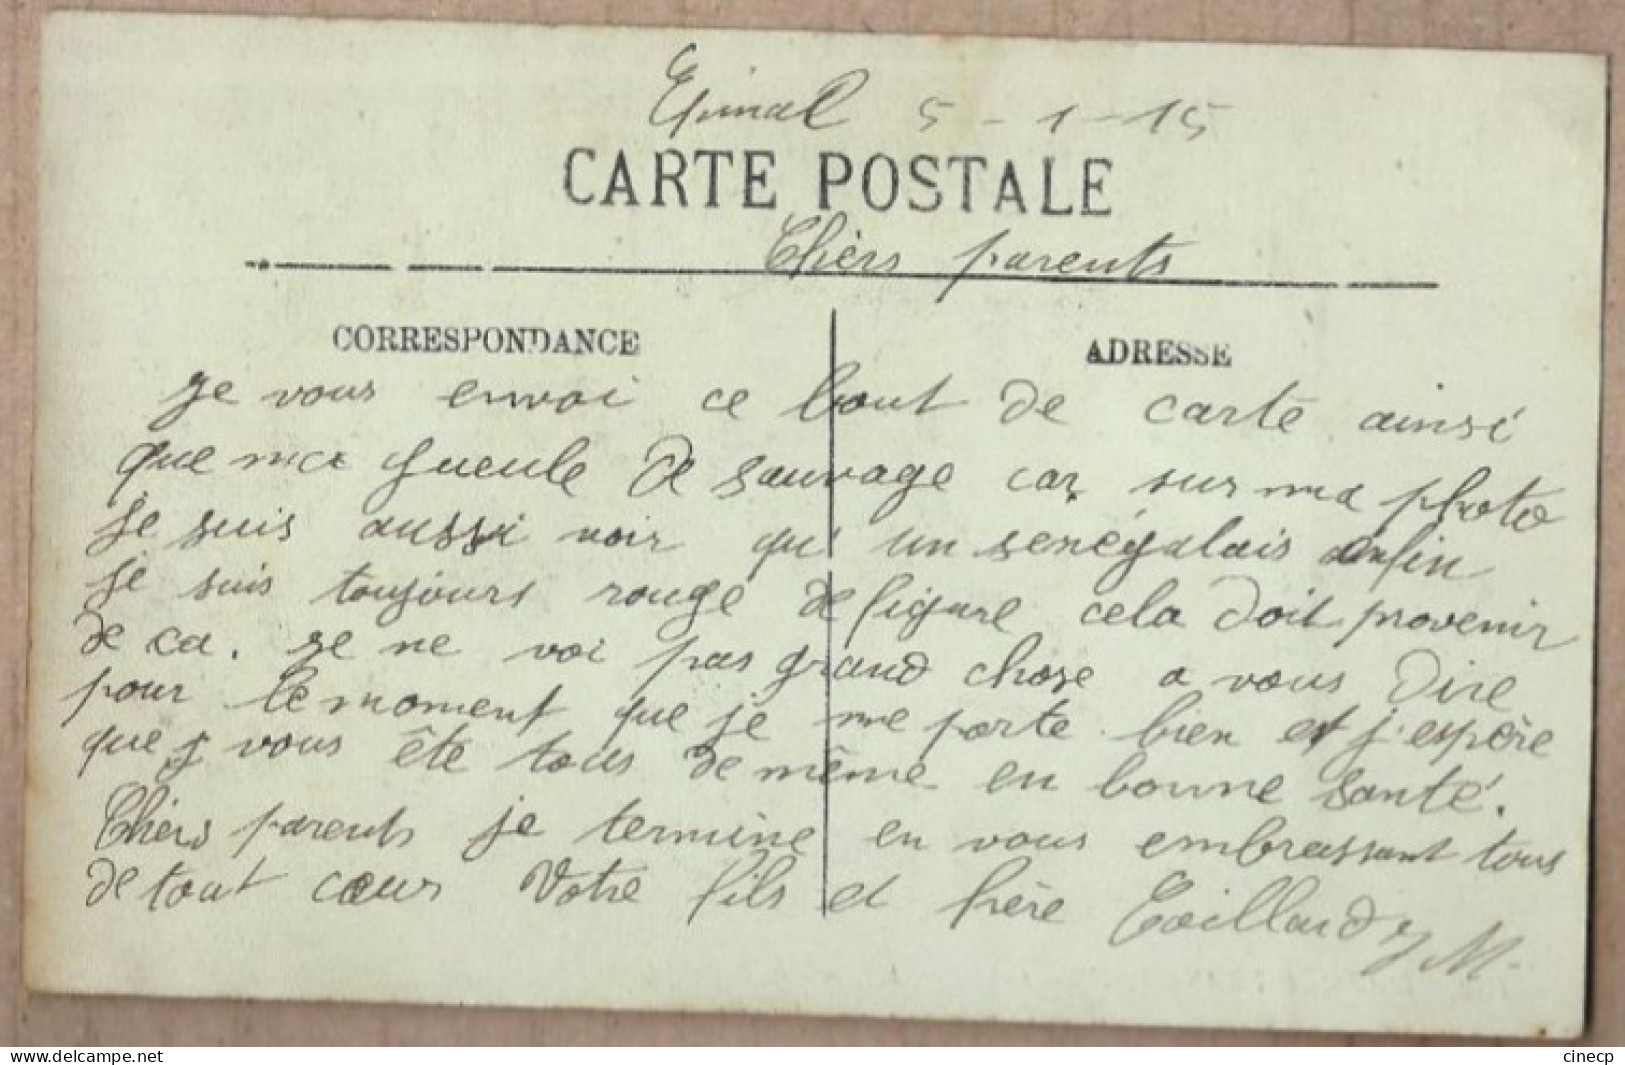 Epinal 5-1-15
CARTE POSTALE
Chèrs parents
CORRESPONDANCE
ADRESSE
Je vous envoi ce bout de carte ainsi
que ma gueule de sauvage car sur ma photo
je suis aussi noir qu'un senégalais enfin
je suis toujours rouge de figure cela doit provenir
de ca. Je ne voi pas grand chose a vous dire
pour le moment que je me porte bien et j'espère
que vous ête tous de même en bonne santé.
Chèrs parents je termine en vous embrassant tous
de tout cœur Votre fils et frère M.
delcampe.net
cinecp